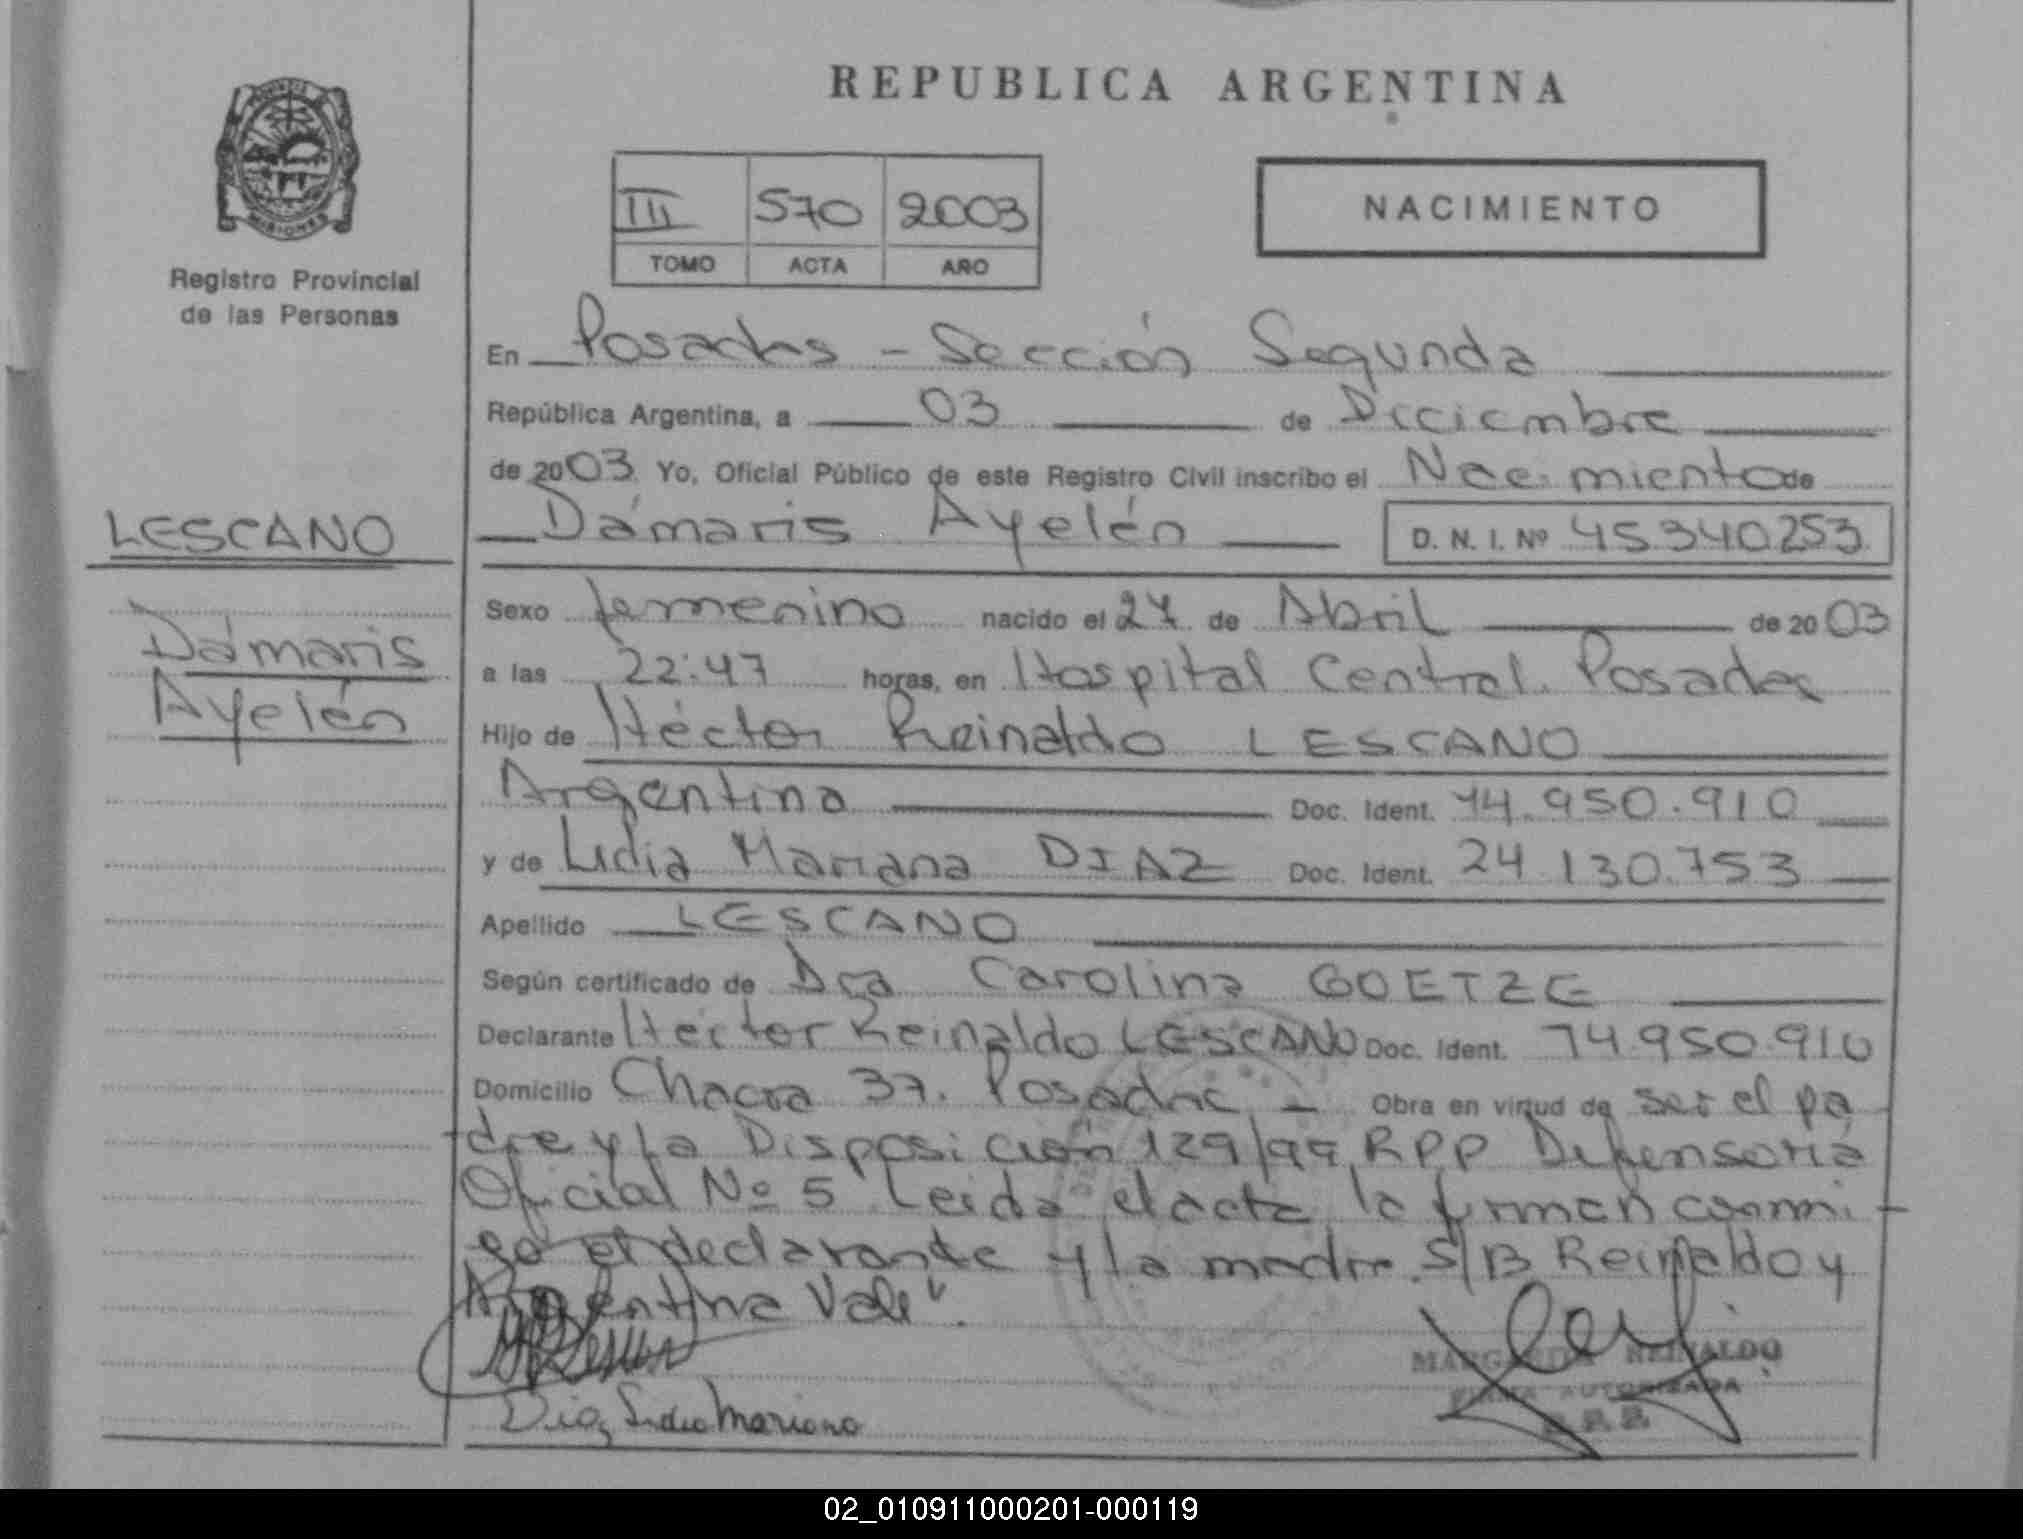 REPUBLICA ARGENTINA
III 570 2003
TOMO ACTA AÑO
NACIMIENTO
PROVINCIA
MISIONES
Registro Provincial
de las Personas
LESCANO
Dámaris
Ayelén
En Posadas - Sección Segunda
República Argentina, a 03 de Diciembre
de 2003. Yo, Oficial Público de este Registro Civil inscribo el Nacimiento de
Dámaris Ayelén D. N. I. Nº 45340253
Sexo femenino nacido el de Abril de 2003
a las 22:47 horas, en Hospital Central. Posadas
Hijo de Héctor Reinaldo LESCANO
Argentina Doc. Ident. 14.950.910
y de Lidia Mariana DIAZ Doc. Ident. 24.130.753
Apellido LESCANO
Según certificado de Dra Carolina GOETZE
Declarante Héctor Reinaldo LESCANO Doc. Ident. 14.950.910
Domicilio Chacra 37. Posadas - Obra en virtud de ser el pa
dre y la Disposición 129/99 RPP Defensoria
Oficial Nº 5 Leida el acta la firman conmi
go el declarante y la madre. S/B Reinaldo y
Argentina Vale".
Diaz Lidia Mariana
MARGARITA REINALDO
FIRMA AUTORIZADA
02_010911000201-000119